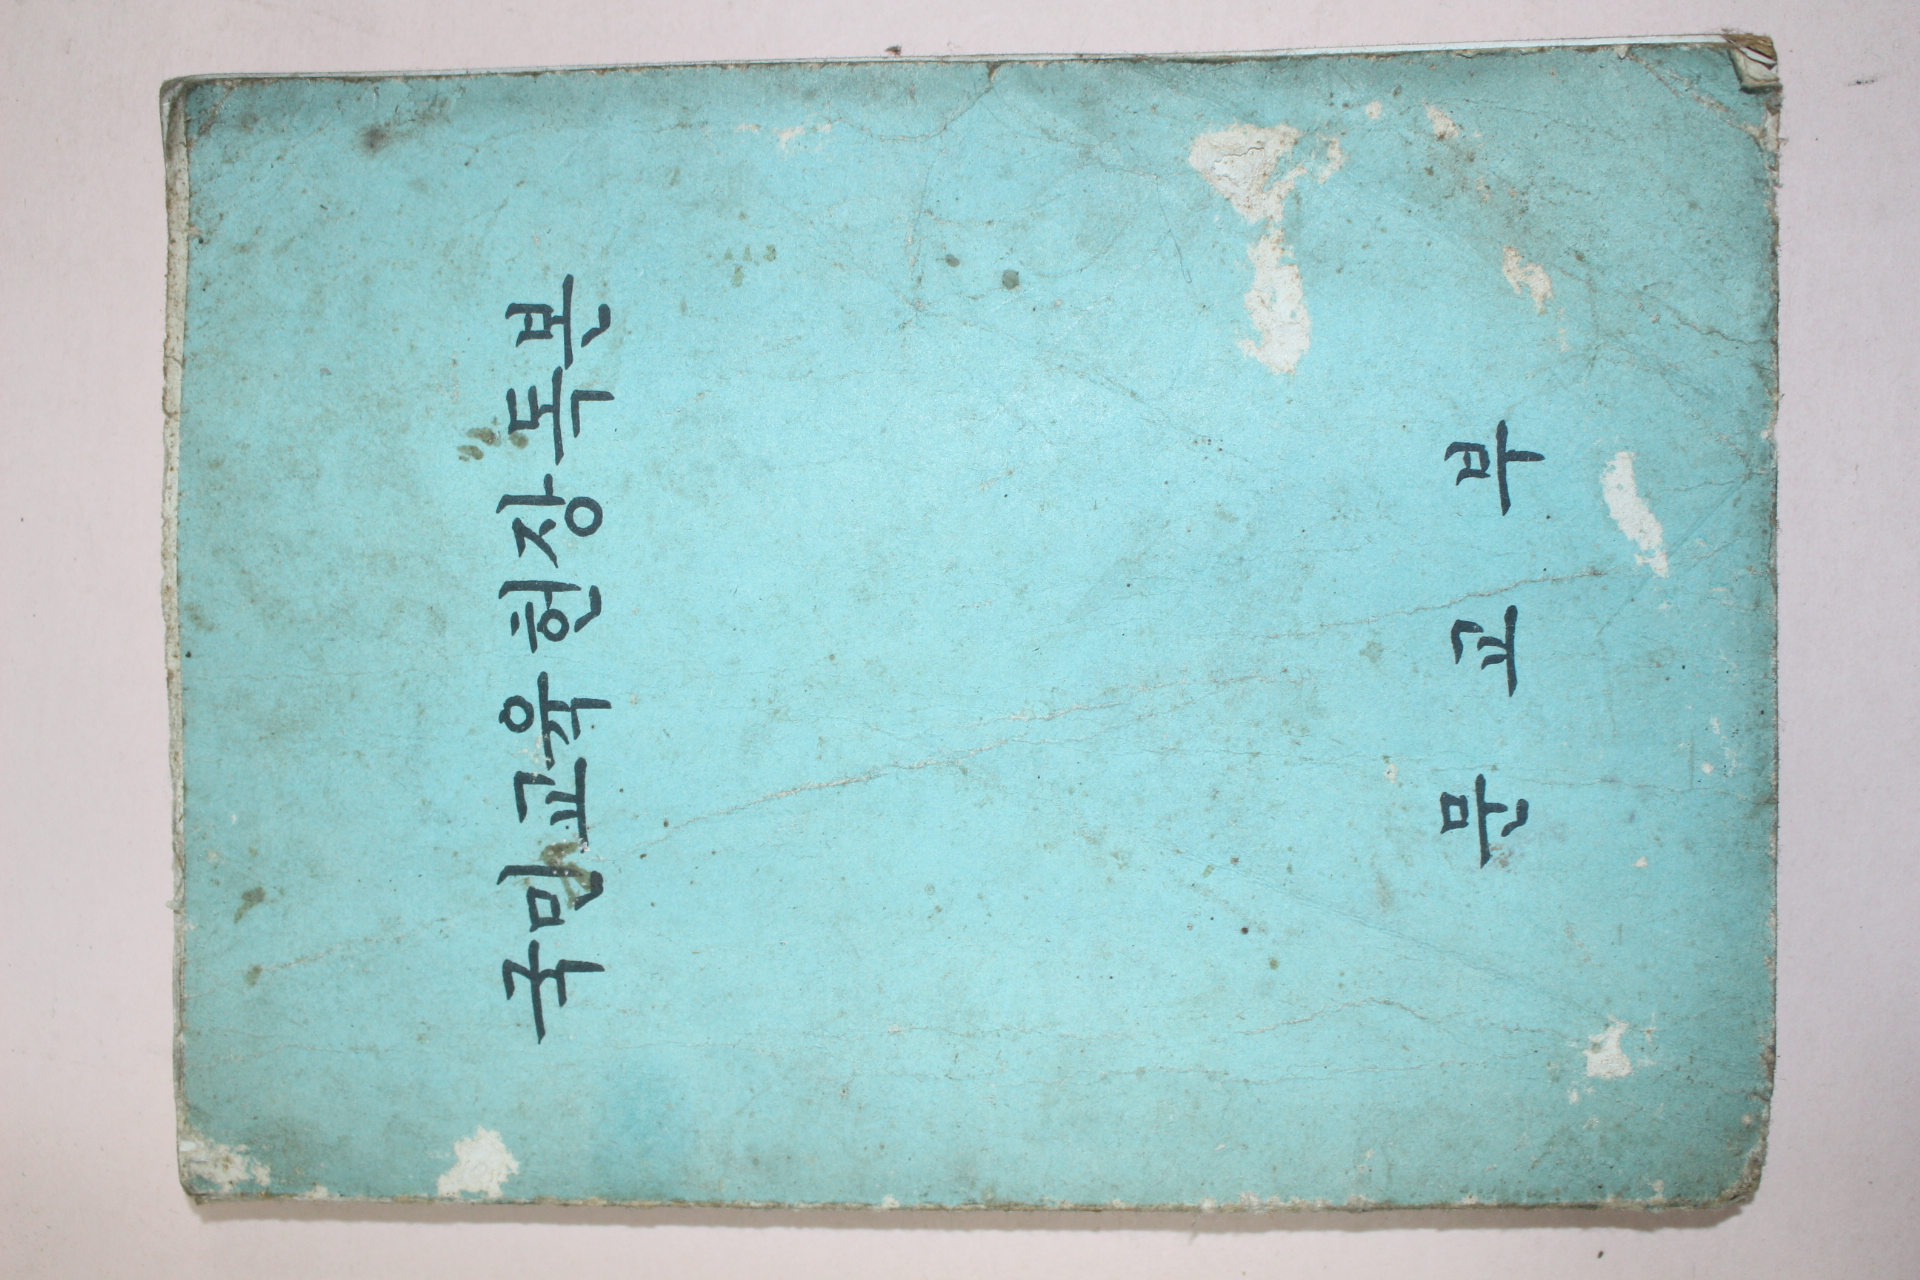 국민교육헌장독본
문교부